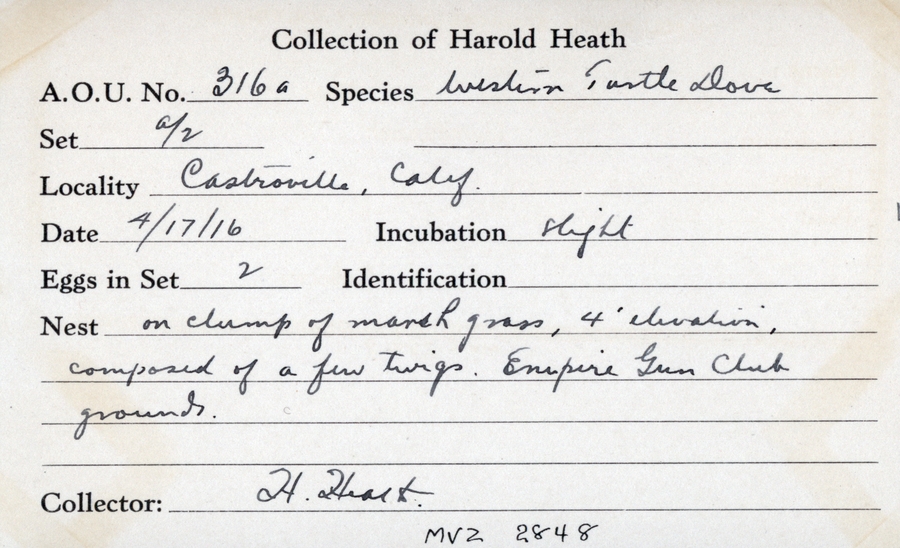 Collection of Harold Heath
A.O.U. No. 316a Species Western Turtle Dove
Set a/2
Locality Castroville, Calif.
Date 4/17/16 Incubation slight
Eggs in Set 2 Identification
Nest on clump of marsh grass, 4' elevation,
composed of a few twigs. Empire Gun Club
grounds.
Collector: H. Heath.
MVZ 2848